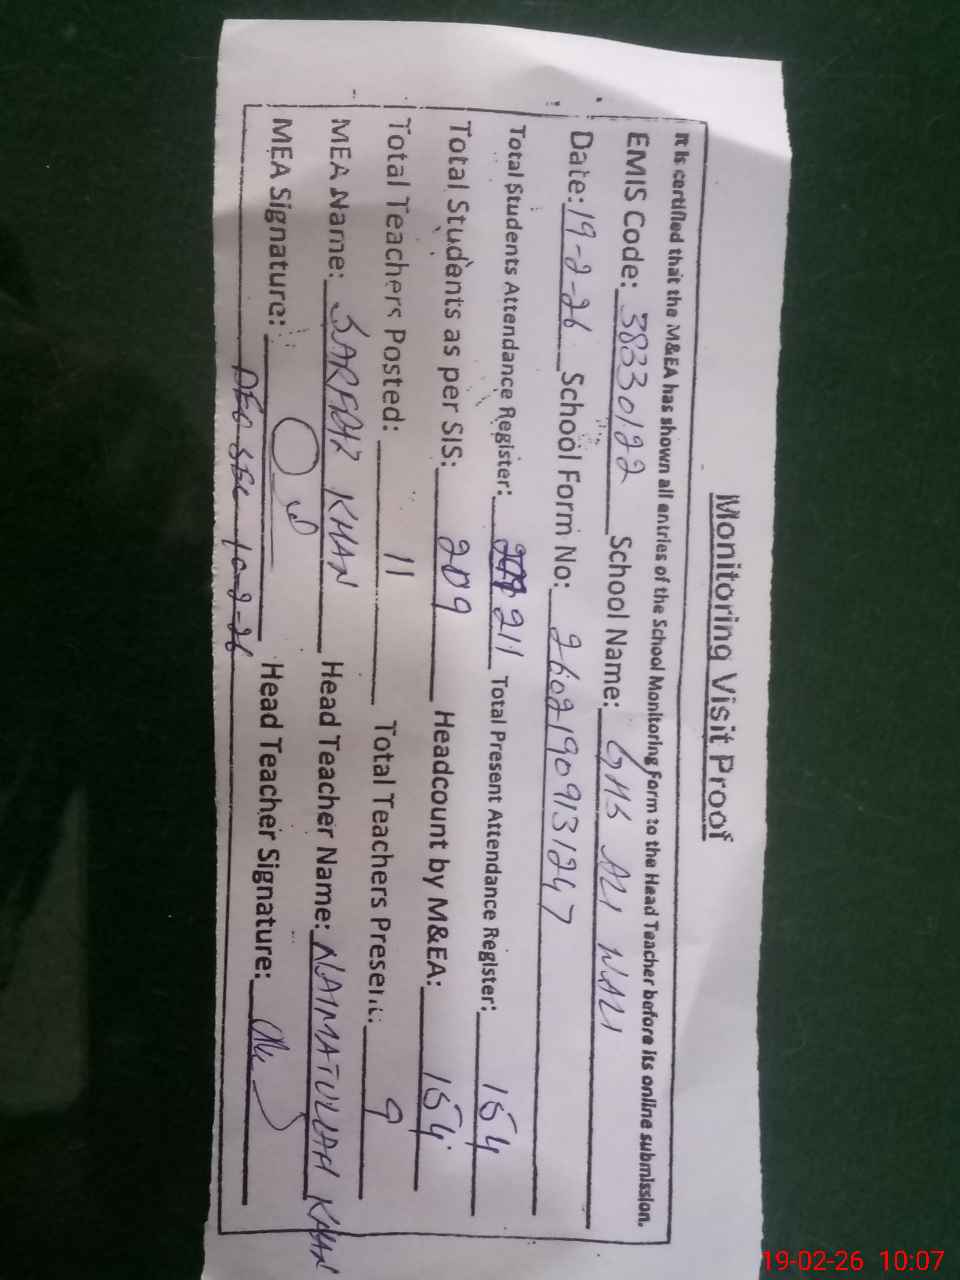 Monitoring Visit Proof
It is certified that the M&EA has shown all entries of the School Monitoring Form to the Head Teacher before its online submission.
EMIS Code: 38330122 School Name: GHS ALI WALI
Date: 19-2-26 School Form No: 26021909131247
Total Students Attendance Register: 211 Total Present Attendance Register: 154
Total Students as per SIS: 209 Headcount by M&EA: 154
Total Teachers Posted: 11 Total Teachers Present: 9
MEA Name: SARFRAZ KHAN Head Teacher Name: NAIMATULLAH KHAN
MEA Signature: Head Teacher Signature:
19-02-26 10:07